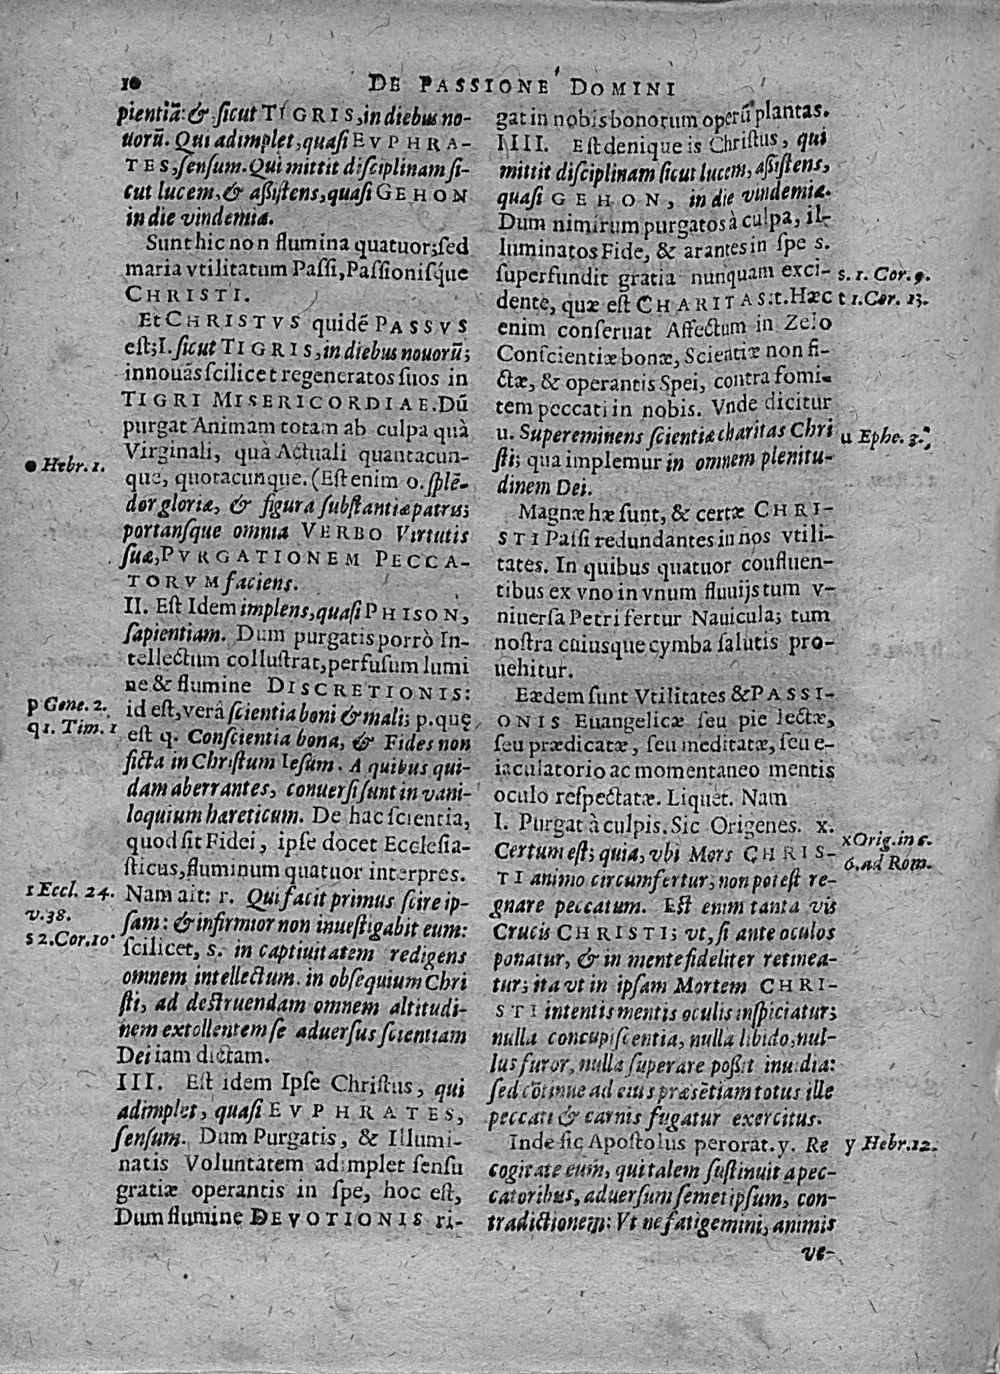 10
DE PASSIONE DOMINI
pientiā: & ſicut TIGRIS, in diebus no-
uorū. Qui adimplet, quaſi EVPHRA-
TES, ſenſum. Qui mittit diſciplinam ſi-
cut lucem, & aſſiſtens, quaſi GEHON
in die vindemiæ.
Sunt hic non flumina quatuor; ſed
maria vtilitatum Paſſi, Paſſionisq́ue
CHRISTI.
Et CHRISTVS quidē PASSVS
eſt; I. ſicut TIGRIS, in diebus nouorū;
innouās ſcilicet regeneratos ſuos in
TIGRI MISERICORDIAE. Dū
purgat Animam totam ab culpa quà
Virginali, quà Actuali quantacun-
que, quotacunque. (Eſt enim o. ſplē-
dor gloriæ, & figura ſubſtantiæ patris;
portansque omnia VERBO Virtutis
ſuæ, PVRGATIONEM PECCA-
TORVM faciens.
II. Eſt Idem implens, quaſi PHISON,
ſapientiam. Dum purgatis porrò In-
tellectum colluſtrat, perfuſum lumi
ne & flumine DISCRETIONIS:
id eſt, verâ ſcientia boni & mali; p. quę
eſt q. Conſcientia bona, & Fides non
ficta in Chriſtum Ieſum. A quibus qui-
dam aberrantes, conuerſi ſunt in vani-
loquium hareticum. De hac ſcientia,
quod ſit Fidei, ipſe docet Eccleſia-
ſticus, fluminum quatuor interpres.
Nam ait: r. Qui facit primus ſcire ip-
ſam: & infirmior non inueſtigabit eum:
ſcilicet, s. in captiuitatem redigens
omnem intellectum. in obſequium Chri
ſti, ad deſtruendam omnem altitudi-
nem extollentem ſe aduerſus ſcientiam
Dei iam dictam.
III. Eſt idem Ipſe Chriſtus, qui
adimplet, quaſi EVPHRATES,
ſenſum. Dum Purgatis, & Illumi-
natis Voluntatem adimplet ſenſu
gratiæ operantis in ſpe, hoc eſt,
Dum flumine DEVOTIONIS ri-
● Hebr. 1.
p Gene. 2.
q 1. Tim. 1
r Eccl. 24.
v. 38.
s 2. Cor. 10.
gat in nobis bonorum operū plantas.
IIII. Eſt denique is Chriſtus, qui
mittit diſciplinam ſicut lucem, aſſiſtens,
quaſi GEHON, in die vindemiæ.
Dum nimirum purgatos à culpa, il-
luminatos Fide, & arantes in ſpe s.
ſuperfundit gratia nunquam exci-
dente, quæ eſt CHARITAS: t. Hæc
enim conſeruat Affectum in Zelo
Conſcientiæ bonæ, Scientiæ non fi-
ctæ, & operantis Spei, contra fomi-
tem peccati in nobis. Vnde dicitur
u. Supereminens ſcientiæ charitas Chri
ſti; qua implemur in omnem plenitu-
dinem Dei.
Magnæ hæ ſunt, & certæ CHRI-
STI Paſſi redundantes in nos vtili-
tates. In quibus quatuor confluen-
tibus ex vno in vnum fluuijs tum v-
niuerſa Petri fertur Nauicula; tum
noſtra cuiusque cymba ſalutis pro-
uehitur.
Eædem ſunt Vtilitates & PASSI-
ONIS Euangelicæ ſeu pie lectæ,
ſeu prædicatæ, ſeu meditatæ, ſeu e-
iaculatorio ac momentaneo mentis
oculo reſpectatæ. Liquet. Nam
I. Purgat à culpis. Sic Origenes. x.
Certum eſt; quia, vbi Mors CHRIS-
TI animo circumfertur; non poteſt re-
gnare peccatum. Eſt enim tanta vis
Crucis CHRISTI; vt, ſi ante oculos
ponatur, & in mente fideliter retinea-
tur; ita vt in ipſam Mortem CHRI-
STI intentis mentis oculis inſpiciatur;
nulla concupiſcentia, nulla libido, nul-
lus furor, nulla ſuperare poſſit inuidia:
ſed cōtinue ad eius præſētiam totus ille
peccati & carnis fugatur exercitus.
Inde ſic Apoſtolus perorat. y. Re
cogitate eum, qui talem ſuſtinuit a pec-
catoribus, aduerſum ſemetipſum, con-
tradictionem: Vt ne fatigemini, animis
ve-
s. 1. Cor. 9.
t 1. Cor. 13.
u Ephe. 3.
x Orig. in c.
6. ad Rom.
y Hebr. 12.